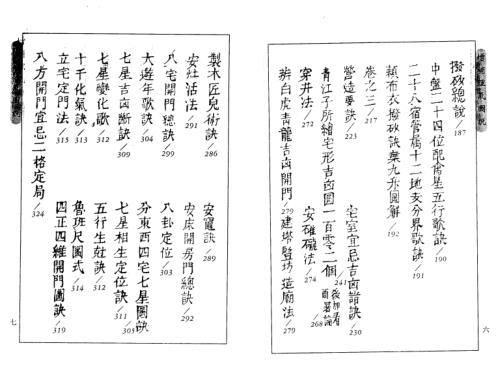 撥砂總說/187
中盤二十四位配龠星五行歌訣/190
二十八宿管屬十二地支分界歌訣/191
賴布衣撥砂訣棄九升圖解/192
卷之三/217
營造要訣/223 宅室宜忌吉凶諸訣/230
青江子所繪宅形吉凶圖一百零二個/241
穿井法/272 安碓磑法/274
辨白虎青龍吉凶開門/279 建塔豎坊造廟法/279
六
製木匠兒術訣/286 安竈訣/289
安灶活法/291 安床開房門總訣/292
八宅開門總訣/299 八卦定位/303
大遊年歌訣/304 分東西四宅七星圖訣/305
七星吉凶斷訣/309 七星相生定位訣/311
七星變化歌/312 五行生尅訣/312
十干化氣訣/313 魯班尺圖式/314
立宅定門法/315 四正四維開門圖訣/319
八方開門宜忌二格定局/324
七